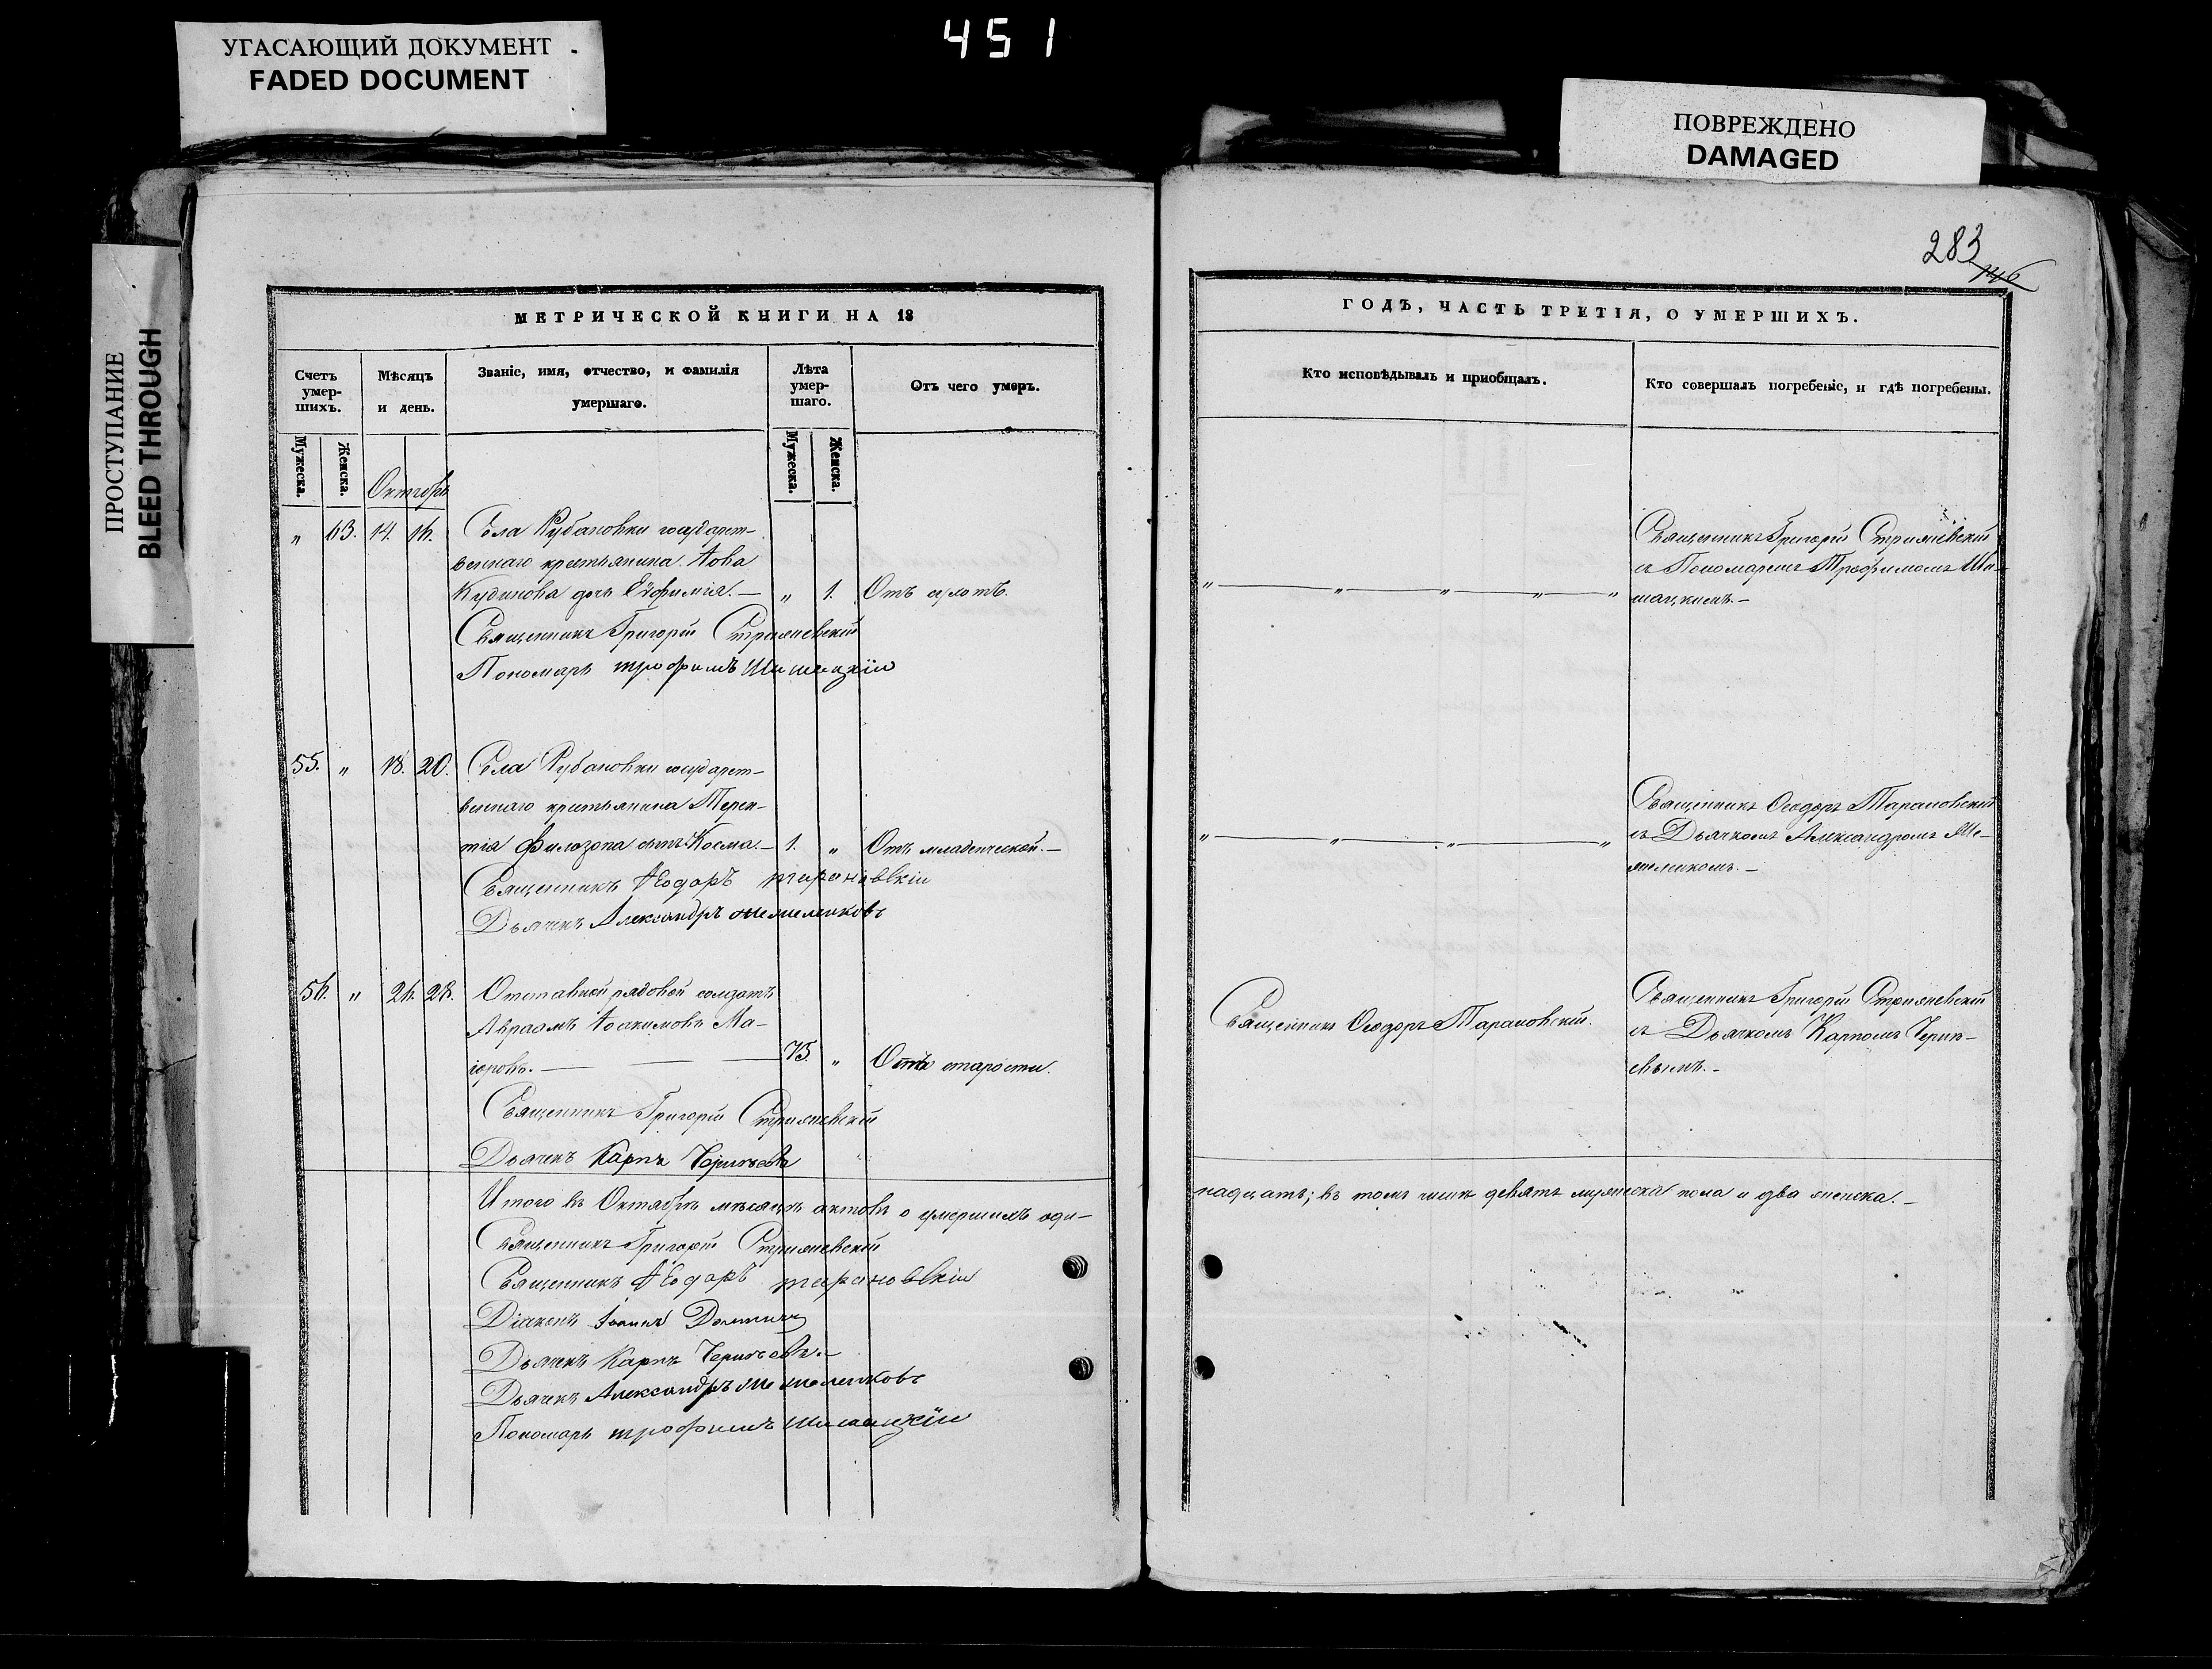 451
УГАСАЮЩИЙ ДОКУМЕНТ
FADED DOCUMENT
ПОВРЕЖДЕНО
DAMAGED
ПРОСТУПАНИЕ
BLEED THROUGH
283
МЕТРИЧЕСКОЙ КНИГИ НА 18
Счетъ умер-шихъ.
Мѣсяцъ и день.
Званіе, имя, отчество, и фамилія умершаго.
Лѣта умер-шаго.
Отъ чего умеръ.
Мужеска.
Женска.
Мужеска.
Женска.
Октябрь
" 63. 14. 16. Села Рубановки государст-
веннаго крестьянина Іова
Кудинова дочь Евфимія. — " 1. Отъ
Священникъ Григорій Стрижевскій
Пономарь трофимъ Шишацкій
55. " 18. 20. Села Рубановки государст-
веннаго крестьянина Терен-
тія Филозопа сынъ Косма. — 1. " Отъ младенческой. —
Священникъ Ѳеодоръ тарановскій
Дьячекъ Александръ
56. " 26. 28. Отставной рядовой солдатъ
Авраамъ Іоакимовъ Ма-
іоровъ. — 75. " Отъ старости.
Священникъ Григорій Стрижевскій
Дьячекъ Карпъ
Итого въ Октябрѣ мѣсяцѣ актовъ о умершихъ оди-
Священникъ Григорій Стрижевскій
Священникъ Ѳеодоръ тарановскій
Діаконъ Іоаннъ
Дьячекъ Карпъ
Дьячекъ Александръ
Пономарь трофимъ Шишацкій
ГОДЪ, ЧАСТЬ ТРЕТІЯ, О УМЕРШИХЪ.
Кто исповѣдывалъ и приобщалъ.
Кто совершалъ погребеніе, и гдѣ погребены.
Священникъ Григорій Стрижевскій
съ Пономаремъ Трофимомъ Ши-
шацкимъ. —
Священникъ Ѳеодоръ Тарановскій
съ Дьячкомъ Александромъ
Священникъ Ѳеодоръ Тарановскій.
Священникъ Григорій Стрижевскій
съ Дьячкомъ Карпомъ
надцать; въ томъ числѣ девять мужеска пола и два женска. —